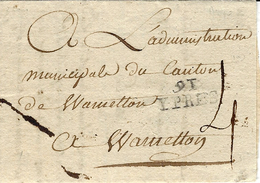 A L'administration
municipale du Canton
de Warneton
91
YPRES
4
a Warneton